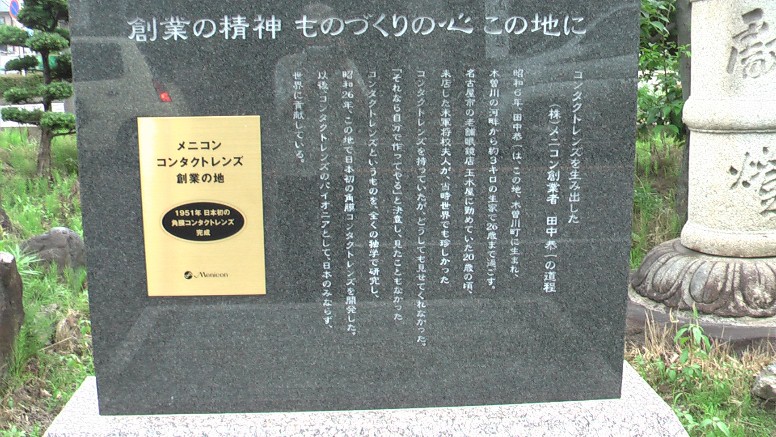 創業の精神 ものづくりの心 この地に
コンタクトレンズを生み出した
(株)メニコン創業者 田中恭一の道程
昭和6年、田中恭一は、この地、木曽川町に生まれ、
木曽川の河畔から約3キロの生家で26歳まで過ごす。
名古屋市の老舗眼鏡店 玉水屋に勤めていた20歳の頃、
来店した米軍将校夫人が、当時世界でも珍しかった
コンタクトレンズを持っていたが、どうしても見せてくれなかった。
「それなら自分で作ってやる」と決意し、見たこともなかった
コンタクトレンズというものを、全くの独学で研究し、
昭和26年、この地で日本初の角膜コンタクトレンズを開発した。
以後、コンタクトレンズのパイオニアとして、日本のみならず、
世界に貢献している。
メニコン
コンタクトレンズ
創業の地
1951年 日本初の
角膜コンタクトレンズ
完成
Menicon
献
燈